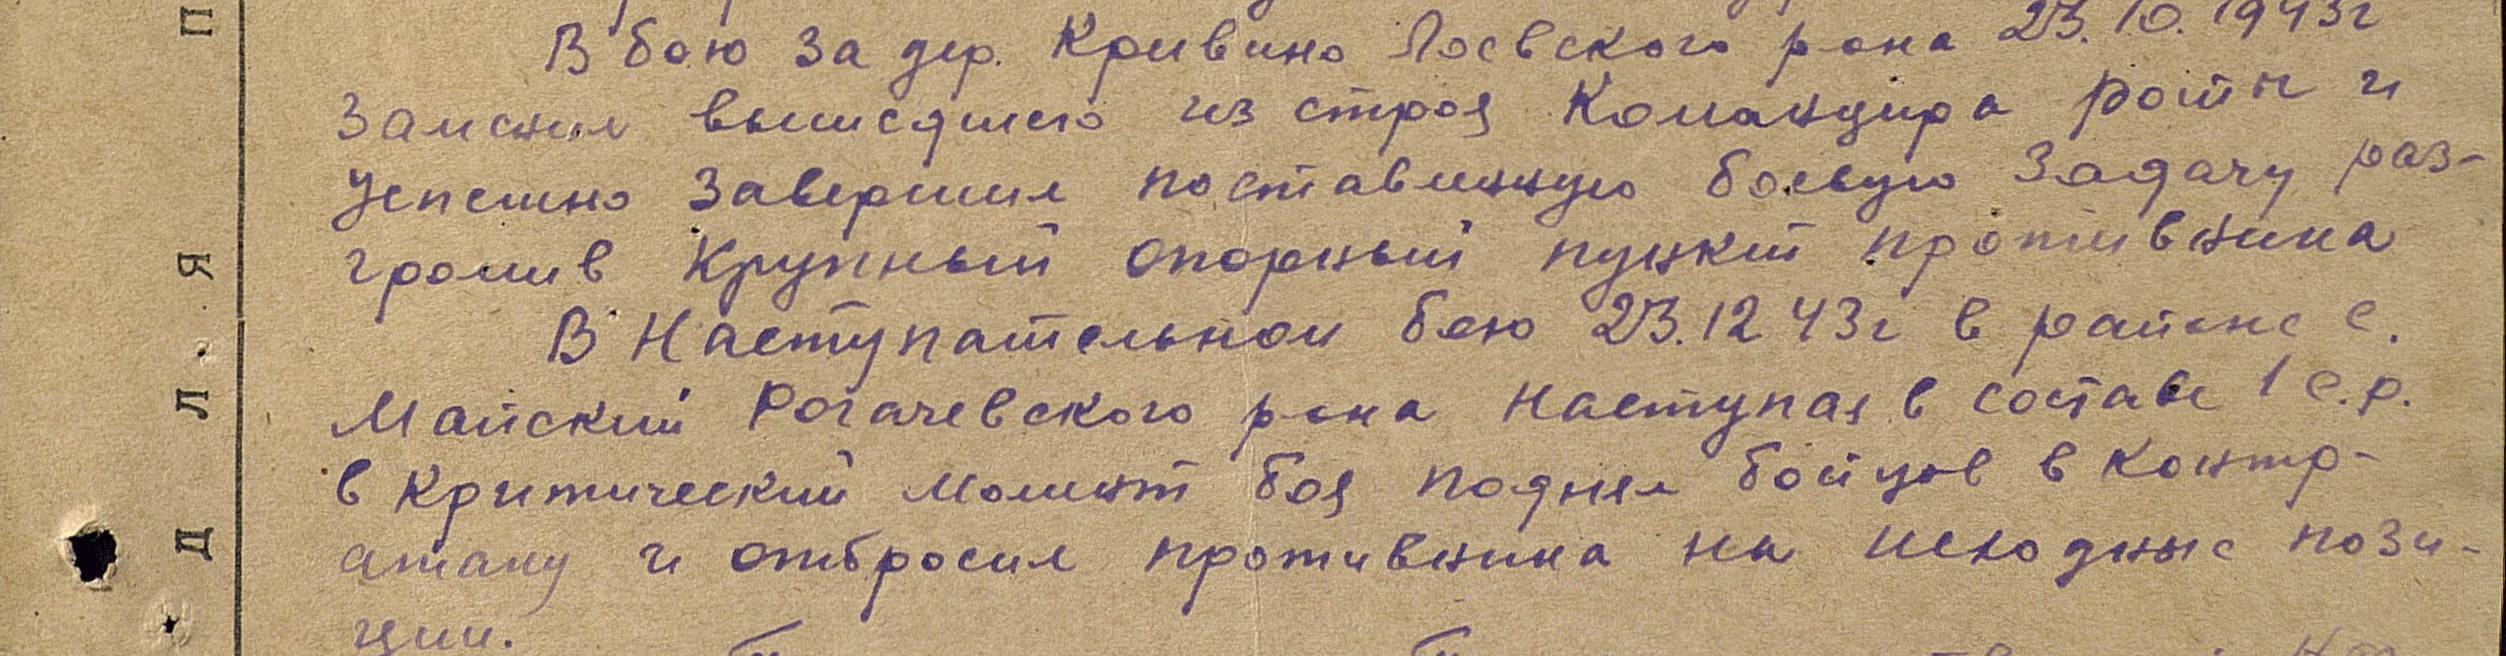 В бою за дер. Кривино Лоевского р она 23.10.1943г
Заменил вышедшего из строя Командира роты и
Успешно Завершил поставленную боевую Задачу раз-
громив Крупный опорный пункт противника
В Наступательном бою 23.12 43г в районе с.
Майский Рогачевского р она Наступая в составе 1 с.р.
в Критический момент боя поднял бойцов в контр-
атаку и отбросил противника на исходные пози-
ции.
П
Я
Л
Д